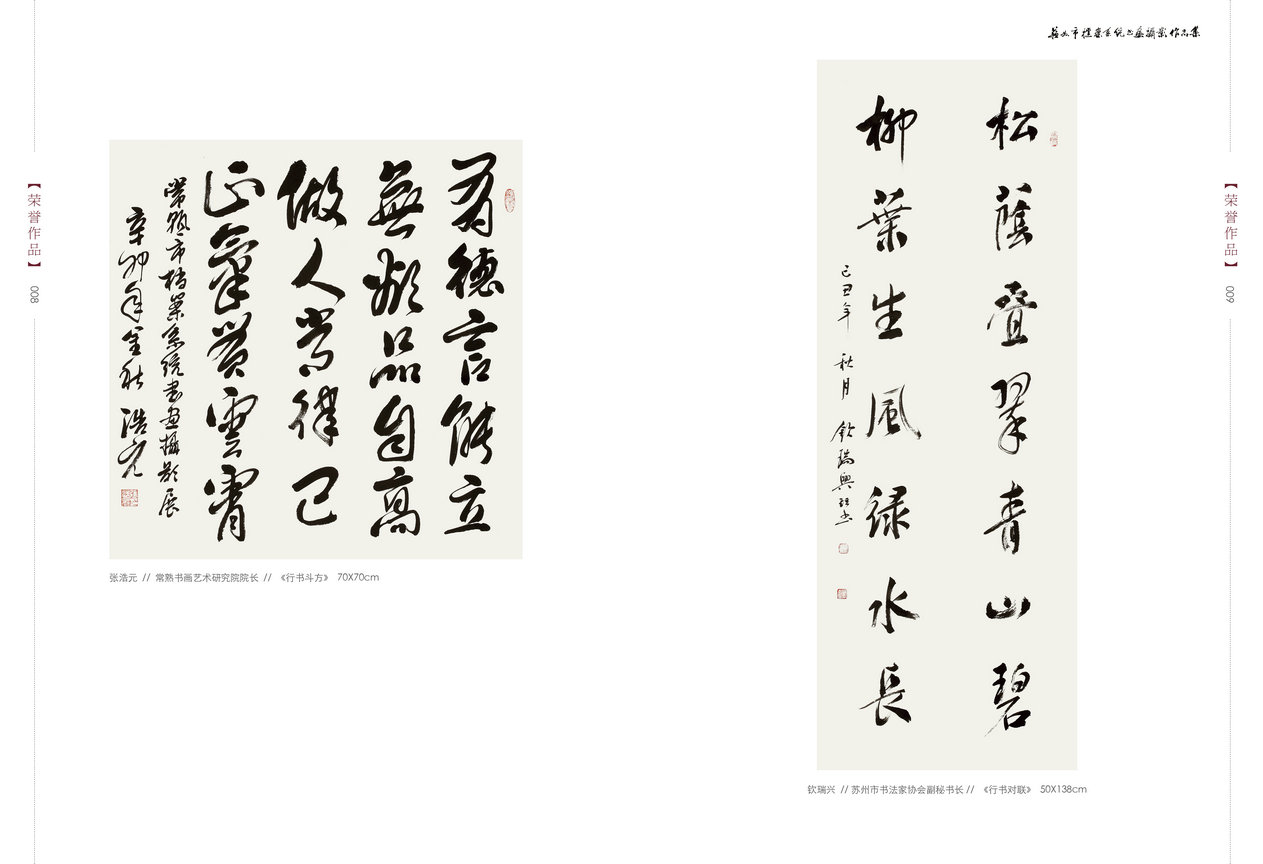 苏州市檔案系统书画摄影作品集
【荣誉作品】
008
有德言能立
無欲品自高
做人常律己
正氣貫雲霄
常熟市档案系统书画摄影展
辛卯年金秋 浩元
张浩元 // 常熟书画艺术研究院院长 // 《行书斗方》 70X70cm
松蔭叠翠青山碧
柳葉生風緑水長
己丑年秋月 钦瑞興
钦瑞兴 // 苏州市书法家协会副秘书长 // 《行书对联》 50X138cm
【荣誉作品】
009